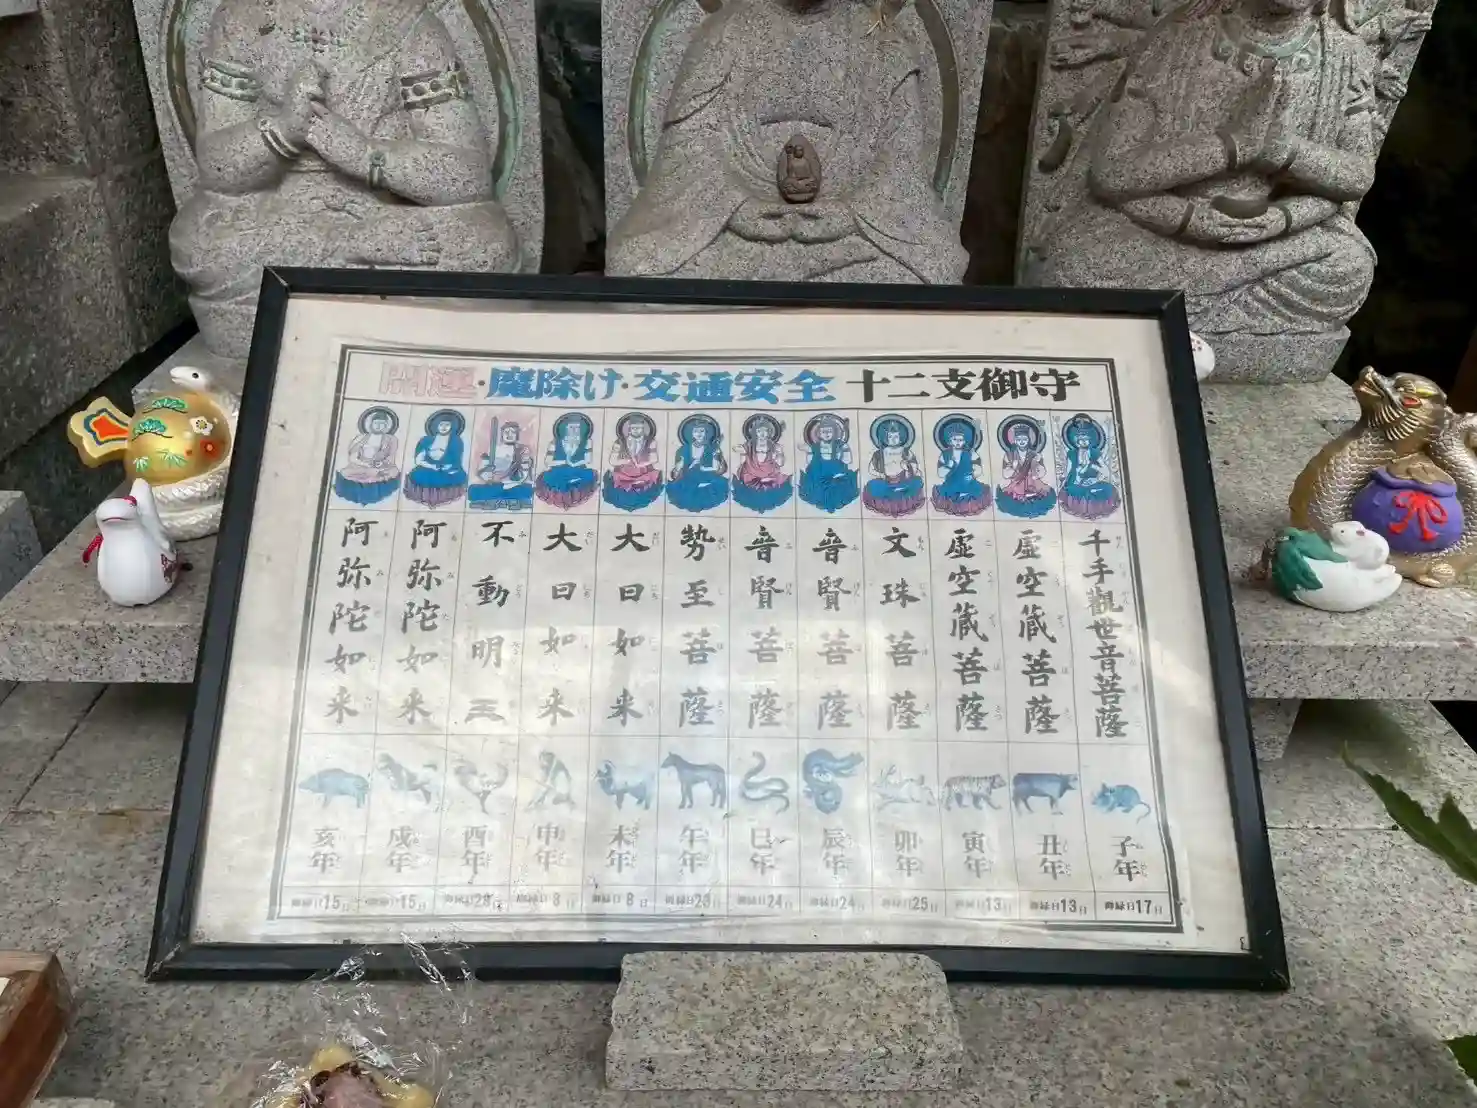 開運・魔除け・交通安全 十二支御守
千手觀世音菩薩
虚空蔵菩薩
虚空蔵菩薩
文珠菩薩
普賢菩薩
普賢菩薩
勢至菩薩
大日如来
大日如来
不動明王
阿弥陀如来
阿弥陀如来
子年
丑年
寅年
卯年
辰年
巳年
午年
未年
申年
酉年
戌年
亥年
御縁日17日
御縁日13日
御縁日13日
御縁日25日
御縁日24日
御縁日24日
御縁日23日
御縁日8日
御縁日8日
御縁日28日
御縁日15日
御縁日15日